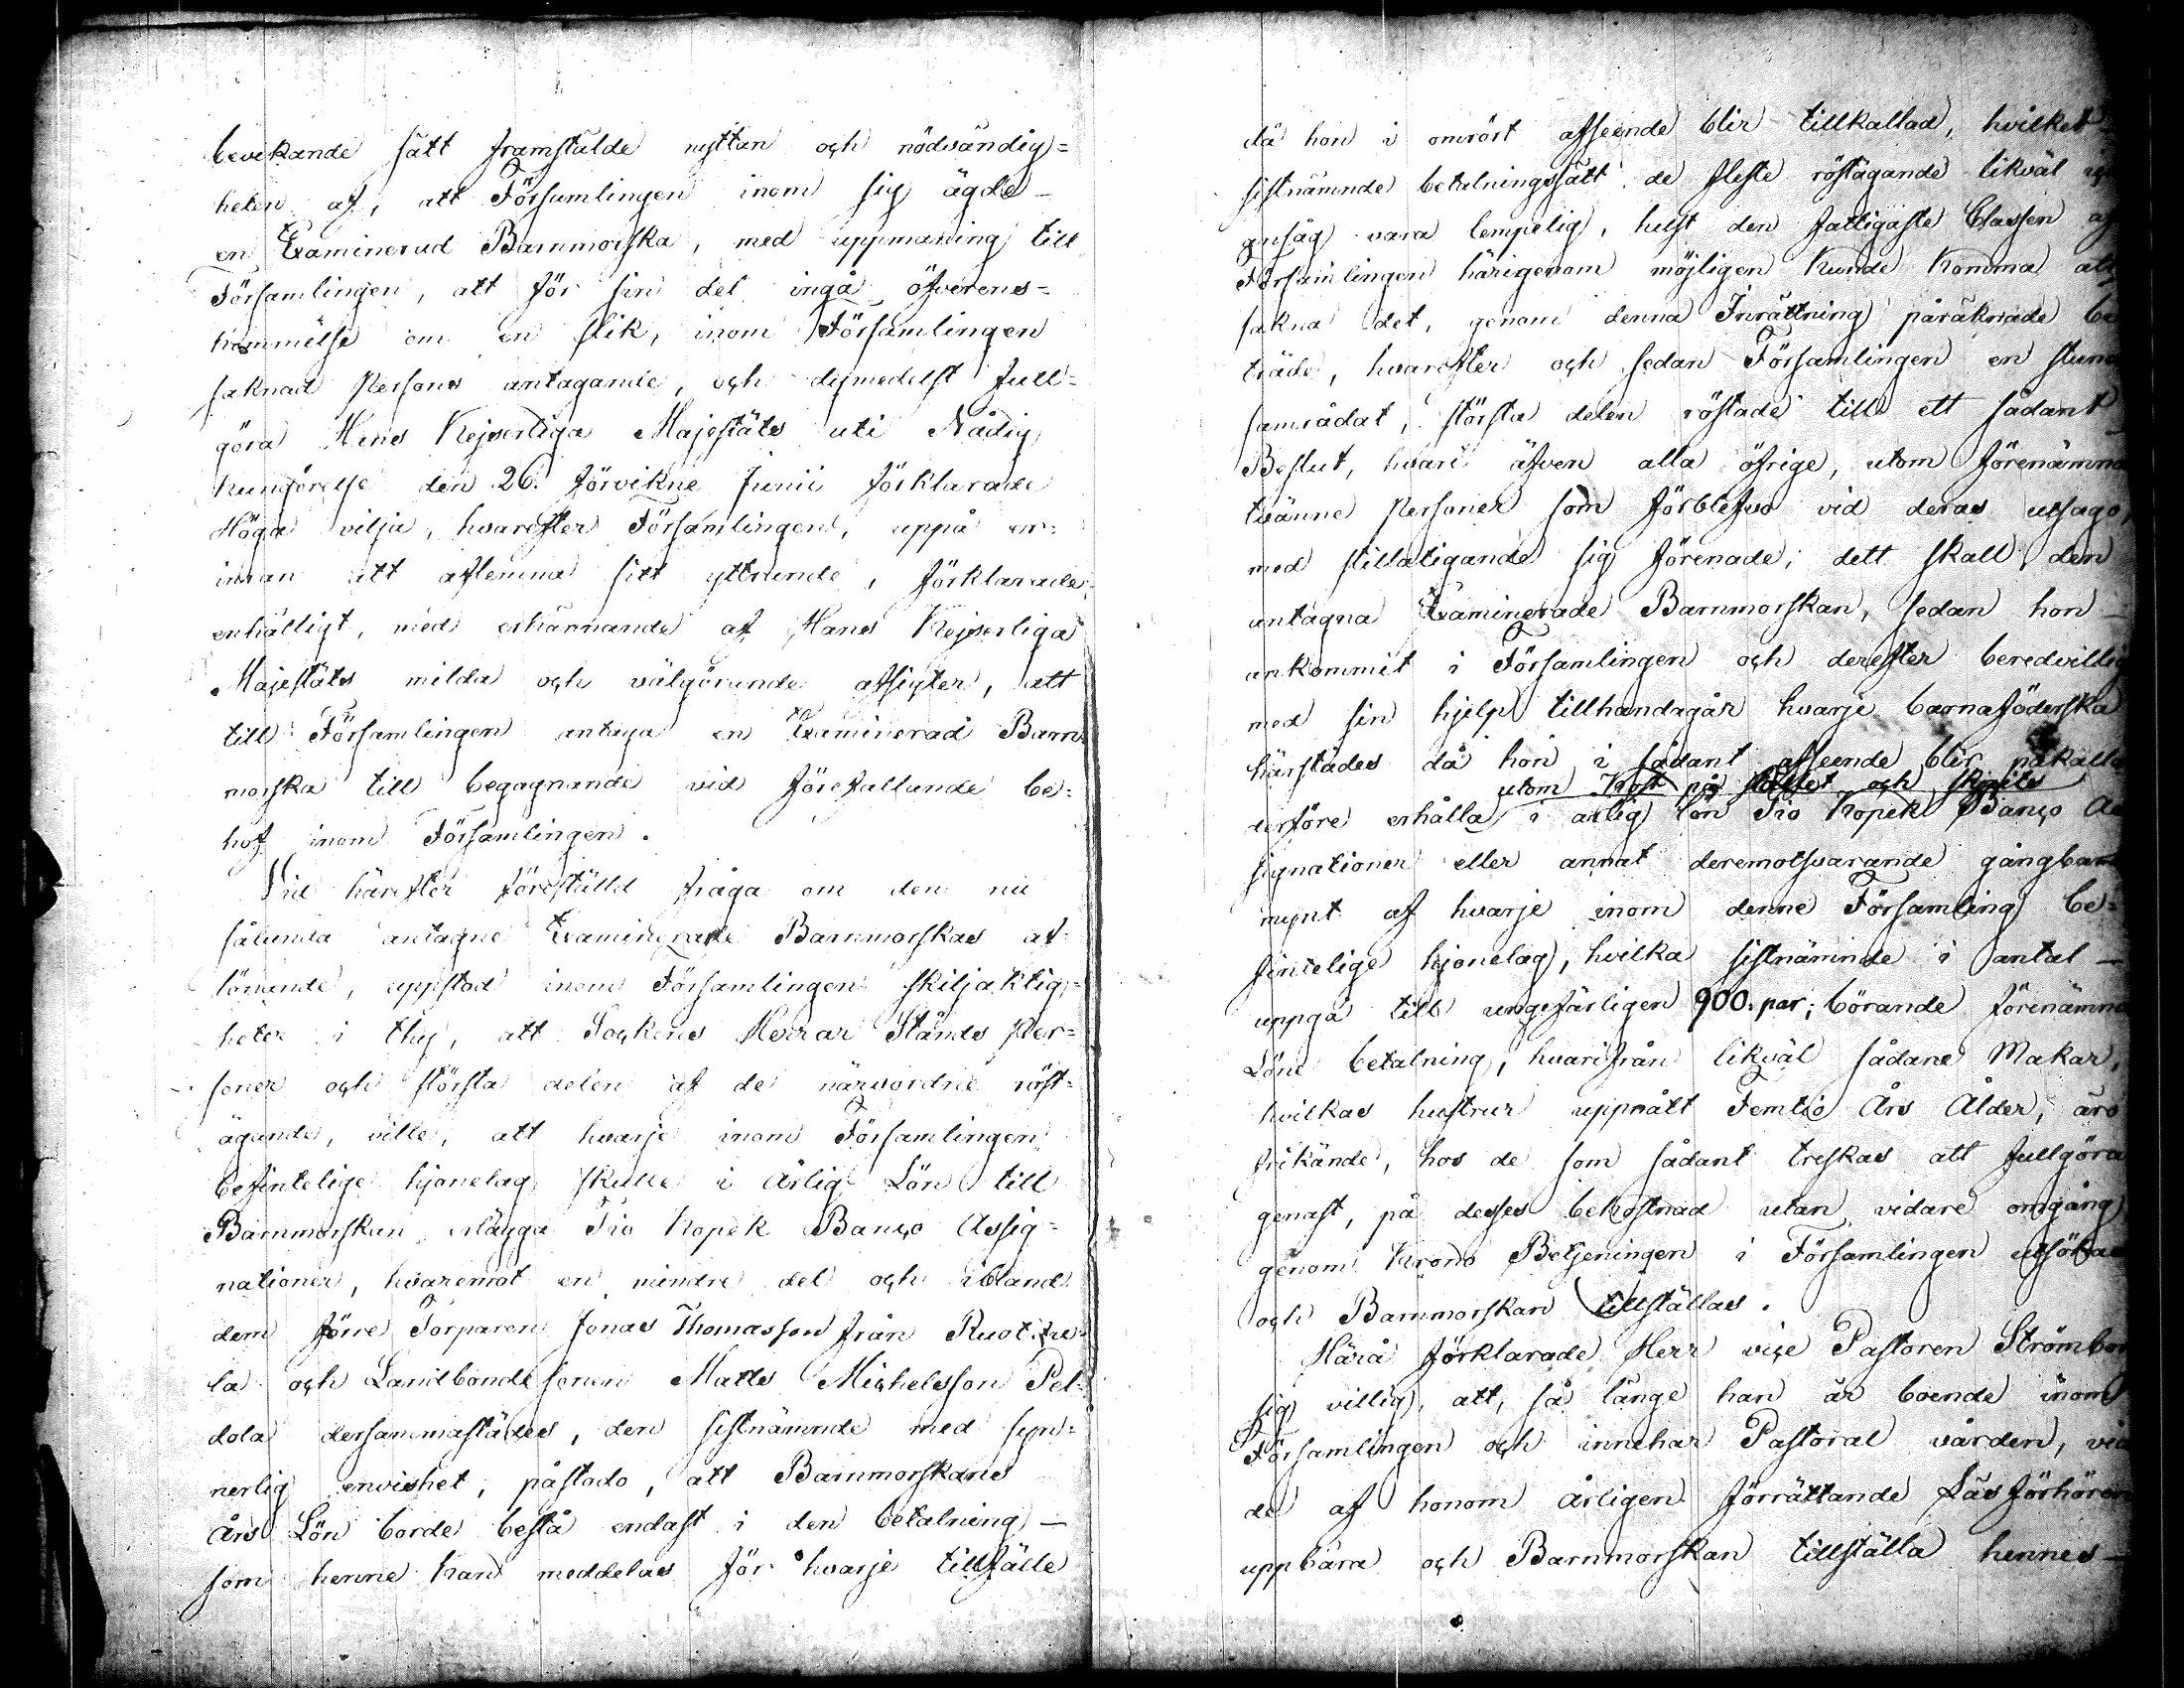 bevekande sätt framstälde nyttan och nödvändig=
heten af, att Församlingen inom sig ägde
en Examinerad Barnmorska, med uppmaning till
Församlingen, att för sin del ingå öfverens=
kommelse om en slik, inom Församlingen
saknad Persons antagande, och dymedelst full=
göra Hans Kejserliga Majestäts uti Nådig
Kungörelse den 26. förvikne Junii förklarade
Höga vilja, hvarefter Församlingen, uppå er=
inran att aflemna sitt yttrande, förklarade
enhälligt, med erkännande af Hans Kejserliga
Majestäts milda och välgörande afsigter, att
till Församlingen antaga en Examinerad Barn
morska till begagnande vid förefallande be=
hof inom Församlingen.
Vid härefter föreställd fråga om den nu
sålunda antagne Examinerade Barnmorskas af=
lönande, uppstod inom Församlingen skiljaktig=
heter i thy, att Sockens Herrar Stånds Per=
soner och största delen af de närvordne röst=
ägande, ville, att hvarje inom Församlingen
befintelige hjonelag skulle i Årlig Lön till
Barnmorskan erlägga Tio Kopek Banco Assig=
nationer, hvaremot en mindre del och ibland
dem förre Torparen Jonas Thomasson från
la och Landbonde sonen Matts Michelsson Pel=
dola dersammastädes, den sistnämnde med syn=
nerlig envishet, påstodo, att Barnmorskans
Års Lön borde bestå endast i den betalning
som henne kan meddelas för hvarje tillfälle
då hon i omrört afseende blir tillkallad, hvilket
sistnämnde betalningssätt de fleste röstägande likväl
ansåg vara lempelig, helst den fattigaste Classen af
Församlingen härigenom möjligen kunde komma att
sakna det, genom denna Inrättning påräknade be
träde, hvarefter och sedan Församlingen en stund
samrådat, största delen röstade till ett sådant
Beslut, hvari äfven alla öfrige, utom förenämnde
tvänne Personer som förblefvo vid deras utsago,
med stillatigande sig förenade; dett skall den
antagna Examinerade Barnmorskan, sedan hon
ankommit i Församlingen och derefter beredvillig
med sin hjelp tillhandagår hvarje barnaföderska
härstädes då hon i sådant afseende blir påkallad
utom Kost på stället och skjuts
derföre erhålla i årlig lön Tio Kopek Banco As
signationer eller annat deremotsvarande gångbart
mynt af hvarje inom denne Församling be=
fintelige hjonelag, hvilka sistnämnde i antal
uppgå till ungefärligen 900. par; börande förenämnde
Löne betalning, hvarifrån likväl sådane Makar,
hvilkas hustrur uppnått Femtio Års Ålder, äro
frikände, hos de som sådant treskas att fullgöra
genast, på desses bekostnad utan vidare omgång
genom Krono Betjeningen i Församlingen utsökas
och Barnmorskan tillställas.
Härå förklarade Herr vice Pastoren
sig villig, att, så länge han är boende inom
Församlingen och innehar Pastoral vården, vid
de af honom årligen förrättande Läsförhören
uppbära och Barnmorskan tillställa hennes